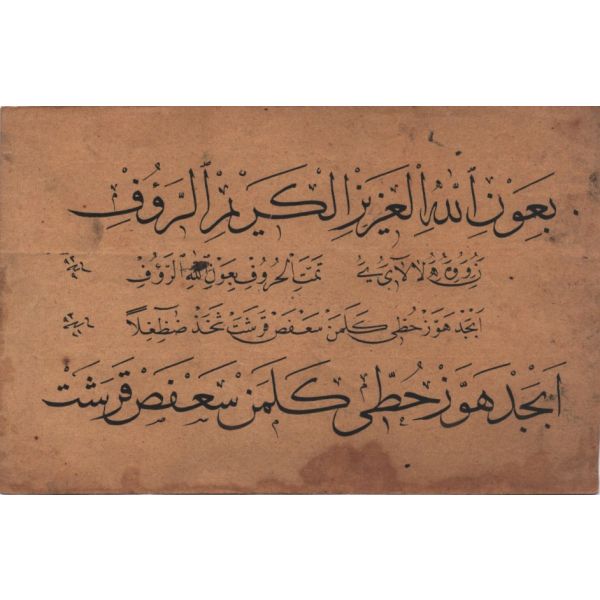 بِعَوْنِ ٱللّٰهِ ٱلْعَزِيزِ ٱلْكَرِيْمِ ٱلرَّؤُفِ
تَمَّتِ الْحُرُوفُ بِعَوْنِ اللّٰهِ الرَّؤُفْ
اَبْجَدْ هَوَّزْ حُطِّى كَلَمَنْ سَعْفَصْ قَرَشَتْ ثَخَذْ ضَظَغِلاً
اَبْجَدْ هَوَّزْ حُطِّى كَلَمَنْ سَعْفَصْ قَرَشَتْ